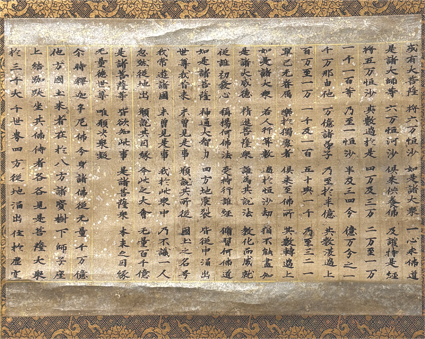 或有大菩薩 將六万恒沙 如是諸大衆 一心求佛道
是諸大師等 六万恒河沙 俱來供養佛 及護持是經
將五万恒沙 其數過於是 四万及三万 二万至一万
一千一百等 乃至一恒沙 半及三四分 億万分之一
千万那由他 万億諸弟子 乃至於半億 其數復過上
百万至一万 一千及一百 五十與一十 乃至三二一
單己无眷屬 樂於獨處者 俱來至佛所 其數轉過上
如是諸大衆 若人行籌數 過於恒沙劫 猶不能盡知
是諸大威德 精進菩薩衆 誰爲其說法 教化而成就
從誰初發心 稱揚何佛法 受持行誰經 脩習何佛道
如是諸菩薩 神通大智力 四方地震裂 皆從中涌出
世尊我昔來 未曾見是事 願說其所從 國土之名号
我常遊諸國 未曾見是衆 我於此衆中 乃不識一人
忽然從地出 願說其因緣 今此之大會 无量百千億
是諸菩薩等 皆欲知此事 是諸菩薩衆 本末之因緣
无量德世尊 唯願決衆疑
尒時釋迦牟尼佛分身諸佛從无量千万億
他方國土來者在於八方諸寶樹下師子座
上結跏趺坐其佛侍者各各見是菩薩大衆
於三千大千世界四方從地涌出住於虛空